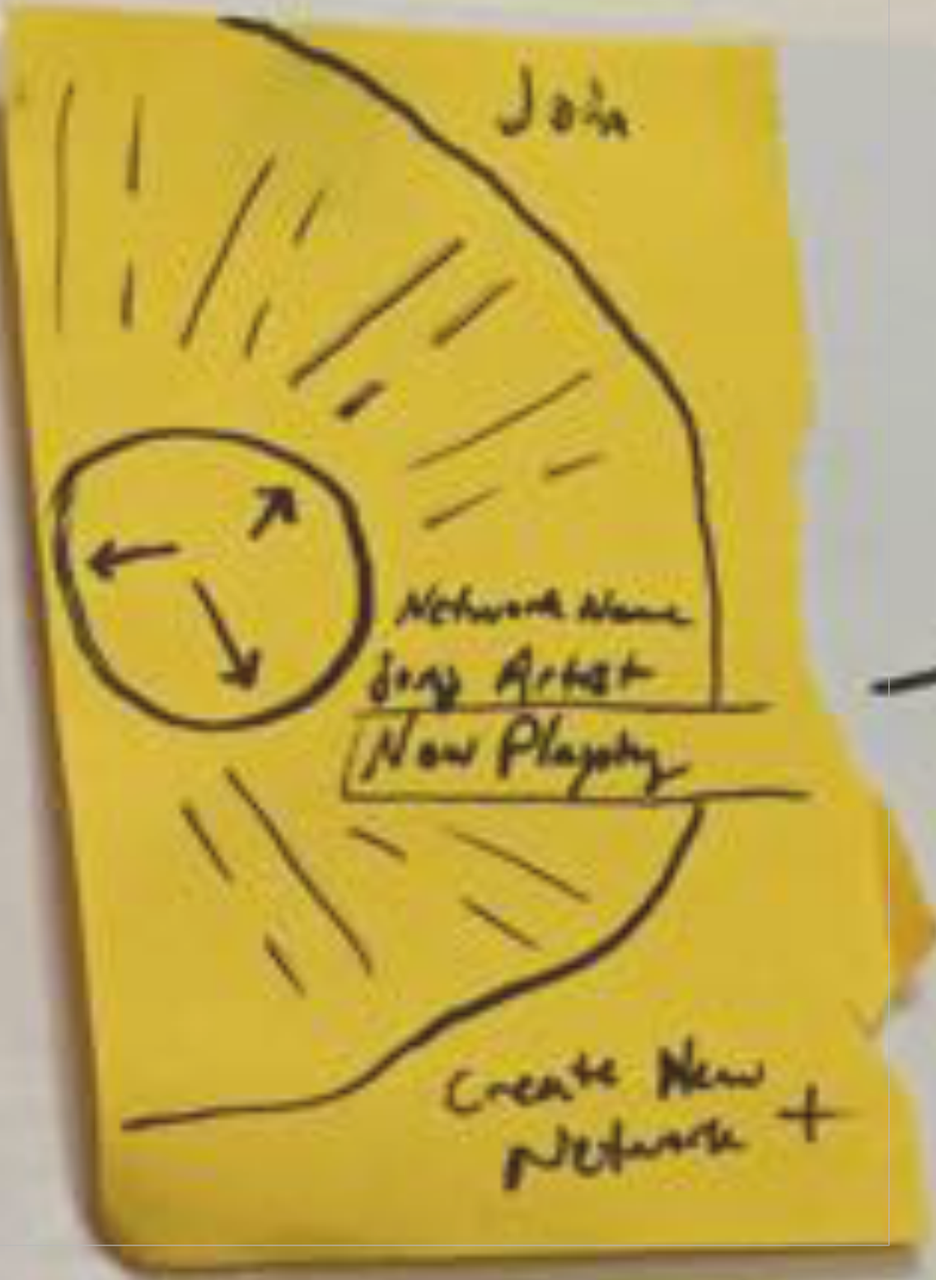 Join
Network Name
Song Artist
Now Playing
Create New
Network +